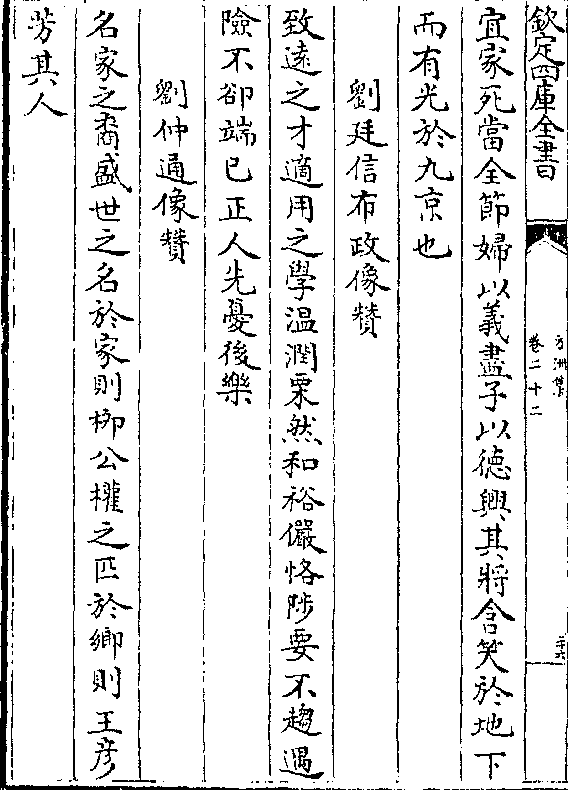 欽定四庫全書
方洲集
卷二十二
二十六
宜家死當全節婦以義盡子以德興其將含笑於地下
而有光於九京也
劉廷信布政像贊
致遠之才適用之學温潤栗然和裕儼恪陟要不趨遇
險不卻端已正人先憂後樂
劉仲通像贊
名家之裔盛世之名於家則柳公權之匹於鄉則王彦
芳其人